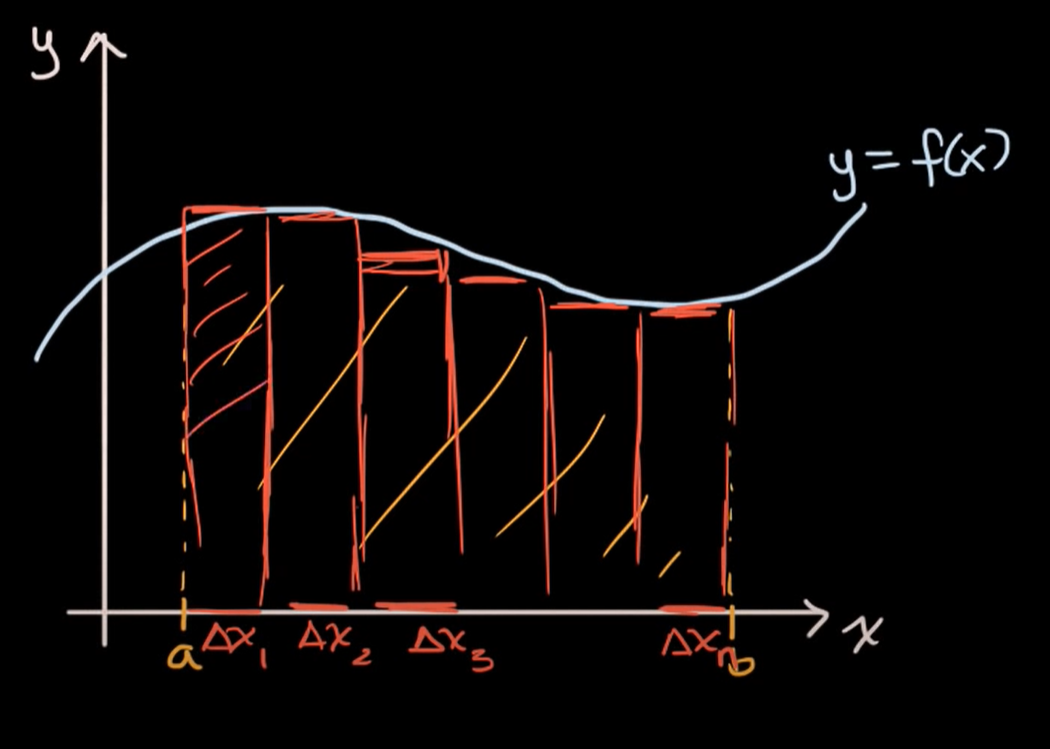 y
y = f(x)
x
a Δx₁ Δx₂ Δx₃ Δxₙ b